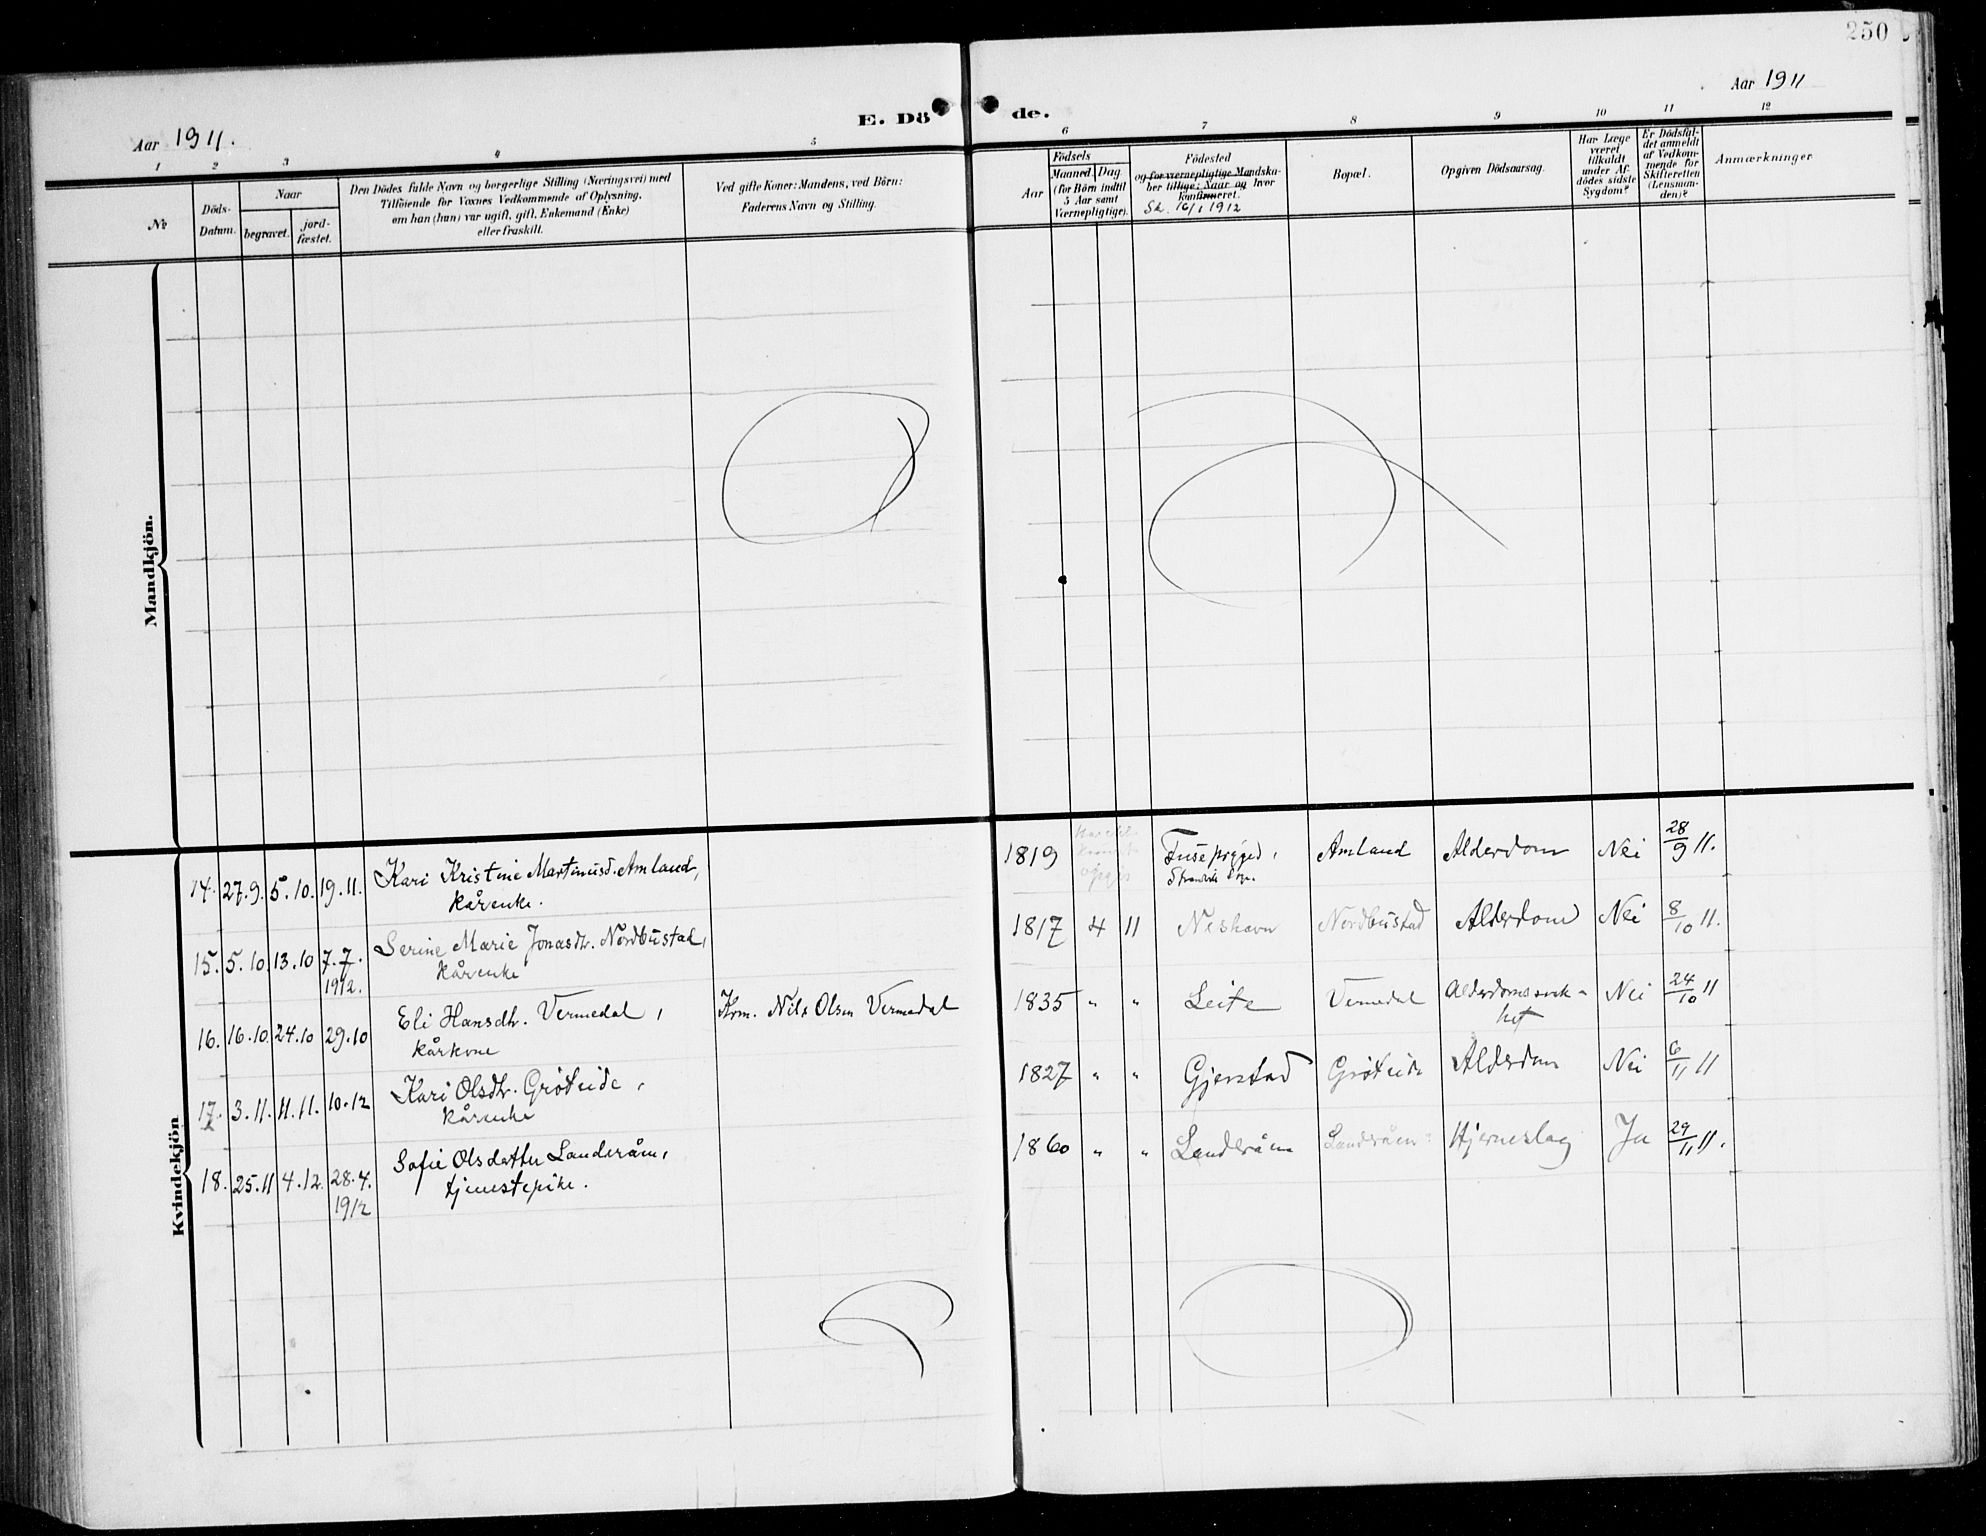 250
Aar 1911.
E. Döde.
Aar 1911
1 2 3 4 5 6 7 8 9 10 11 12
№
Döds-
Datum.
Naar
begravet.
jord-
fæstet.
Den Dödes fulde Navn og borgerlige Stilling (Næringsvei) med
Tilföiende for Voxnes Vedkommende af Oplysning,
om han (hun) var ugift, gift, Enkemand (Enke)
eller fraskilt.
Ved gifte Koner: Mandens, ved Börn:
Faderens Navn og Stilling.
Aar
Födsels
Maaned. Dag
(for Börn indtil
5 Aar samt
Værnepligtige).
Födested
og for værnepligtige Mandska-
ber tillige: Naar og hvor
konfirmeret.
Sk. 16/1 1912
Bopæl.
Opgiven Dödsaarsag.
Har Læge
været
tilkaldt
under Af-
dödes sidste
Sygdom?
Er Dödsfal-
det anmeldt
af Vedkom-
mende for
Skifteretten
(Lensman-
den)?
Anmærkninger
Mandkjön.
Kvindekjön
14. 27.9. 5.10. 19.11. Kari Kristine Martinusd. Amland, 1819 Amland Alderdom Nei 28/9 11.
kårenke.
15. 5.10. 13.10 7.7. Serine Marie Jonasdtr. Nordbustad, 1817 4 11 Neshavn Nordbustad Alderdom Nei 8/10 11.
1912. kårenke
16. 16.10. 24.10 29.10 Eli Hansdtr. Vermedal, Krm. Nils Olsen Vermedal 1835 " " Leite Vermedal Alderdomssvak-
het Nei 24/10 11
kårkone
17. 3.11. 11.11. 10.12 Kari Olsdtr. Gröteide, 1827 " " Gjerstad Gröteide Alderdom Nei 6/11 11
kårenke
18. 25.11 4.12. 28.4. Sofie Olsdatter Landeråen, 1860 " " Landeråen Landeråen Hjerneslag Ja 29/11 11.
1912 tjenestepike.